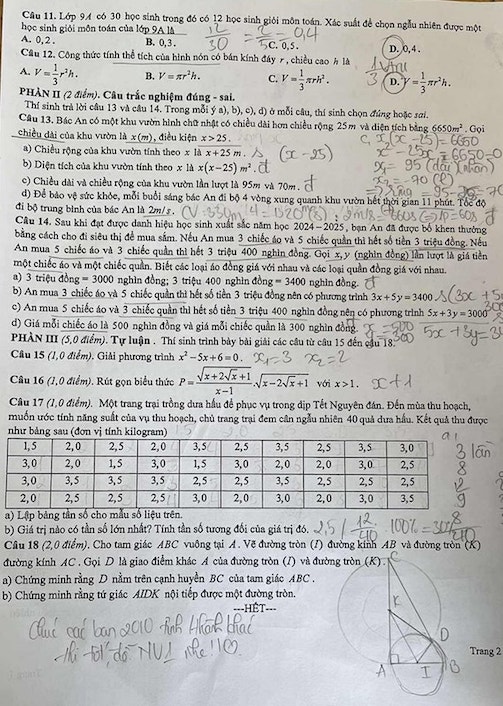 Câu 11. Lớp 9A có 30 học sinh trong đó có 12 học sinh giỏi môn toán. Xác suất để chọn ngẫu nhiên được một
học sinh giỏi môn toán của lớp 9A là 12/30 = 2/5 = 0,4
A. 0,2. B. 0,3. C. 0,5. D. 0,4.
Câu 12. Công thức tính thể tích của hình nón có bán kính đáy r, chiều cao h là
A. V = 1/3 r²h. B. V = πr²h. C. V = 1/3 πrh². D. V = 1/3 πr²h.
PHẦN II (2 điểm). Câu trắc nghiệm đúng - sai.
Thí sinh trả lời câu 13 và câu 14. Trong mỗi ý a), b), c), d) ở mỗi câu, thí sinh chọn đúng hoặc sai.
Câu 13. Bác An có một khu vườn hình chữ nhật có chiều dài hơn chiều rộng 25 m và diện tích bằng 6650m². Gọi
chiều dài của khu vườn là x(m), điều kiện x > 25. c, x(x-25)=6650
a) Chiều rộng của khu vườn tính theo x là x + 25 m. s (x-25)
b) Diện tích của khu vườn tính theo x là x(x − 25) m². đ
c) Chiều dài và chiều rộng của khu vườn lần lượt là 95m và 70m. đ
d) Để bảo vệ sức khỏe, mỗi buổi sáng bác An đi bộ 4 vòng xung quanh khu vườn hết thời gian 11 phút. Tốc độ
đi bộ trung bình của bác An là 2m/s.
Câu 14. Sau khi đạt được danh hiệu học sinh xuất sắc năm học 2024 – 2025, bạn An đã được bố khen thưởng
bằng cách cho đi siêu thị để mua sắm. Nếu An mua 3 chiếc áo và 5 chiếc quần thì hết số tiền 3 triệu đồng. Nếu
An mua 5 chiếc áo và 3 chiếc quần thì hết 3 triệu 400 nghìn đồng. Gọi x, y (nghìn đồng) lần lượt là giá tiền
một chiếc áo và một chiếc quần. Biết các loại áo đồng giá với nhau và các loại quần đồng giá với nhau.
a) 3 triệu đồng = 3000 nghìn đồng; 3 triệu 400 nghìn đồng = 3400 nghìn đồng. đ
b) An mua 3 chiếc áo và 5 chiếc quần thì hết số tiền 3 triệu đồng nên có phương trình 3x + 5y = 3400
c) An mua 5 chiếc áo và 3 chiếc quần thì hết số tiền 3 triệu 400 nghìn đồng nên có phương trình 5x + 3y = 3000
d) Giá mỗi chiếc áo là 500 nghìn đồng và giá mỗi chiếc quần là 300 nghìn đồng.
PHẦN III (5,0 điểm). Tự luận. Thí sinh trình bày bài giải các câu từ câu 15 đến câu 18.
Câu 15 (1,0 điểm). Giải phương trình x² − 5x + 6 = 0. x₁=3 x₂=2
Câu 16 (1,0 điểm). Rút gọn biểu thức P = √(x+2√x+1)/(x−1) . √(x−2√x+1) với x > 1.
Câu 17 (1,0 điểm). Một trang trại trồng dưa hấu để phục vụ trong dịp Tết Nguyên đán. Đến mùa thu hoạch,
muốn ước tính năng suất của vụ thu hoạch, chủ trang trại đem cân ngẫu nhiên 40 quả dưa hấu. Kết quả thu được
như bảng sau (đơn vị tính kilogram)
1,5 2,0 2,5 2,0 3,5 2,5 3,5 2,5 3,5 3,0
3,0 2,0 1,5 3,0 1,5 3,0 2,0 2,0 3,0 2,5
3,0 3,5 3,5 3,5 2,5 3,5 2,5 3,5 2,5 2,5
2,0 2,5 2,5 2,5 3,0 2,0 3,0 2,0 3,0 3,5
a) Lập bảng tần số cho mẫu số liệu trên.
b) Giá trị nào có tần số lớn nhất? Tính tần số tương đối của giá trị đó.
Câu 18 (2,0 điểm). Cho tam giác ABC vuông tại A. Vẽ đường tròn (I) đường kính AB và đường tròn (K)
đường kính AC. Gọi D là giao điểm khác A của đường tròn (I) và đường tròn (K).
a) Chứng minh rằng D nằm trên cạnh huyền BC của tam giác ABC.
b) Chứng minh rằng tứ giác AIDK nội tiếp được một đường tròn.
---HẾT---
Chúc các bạn 2010
thi tốt, đỗ NV1 nhé!!
C
K
D
A I B
Trang 2